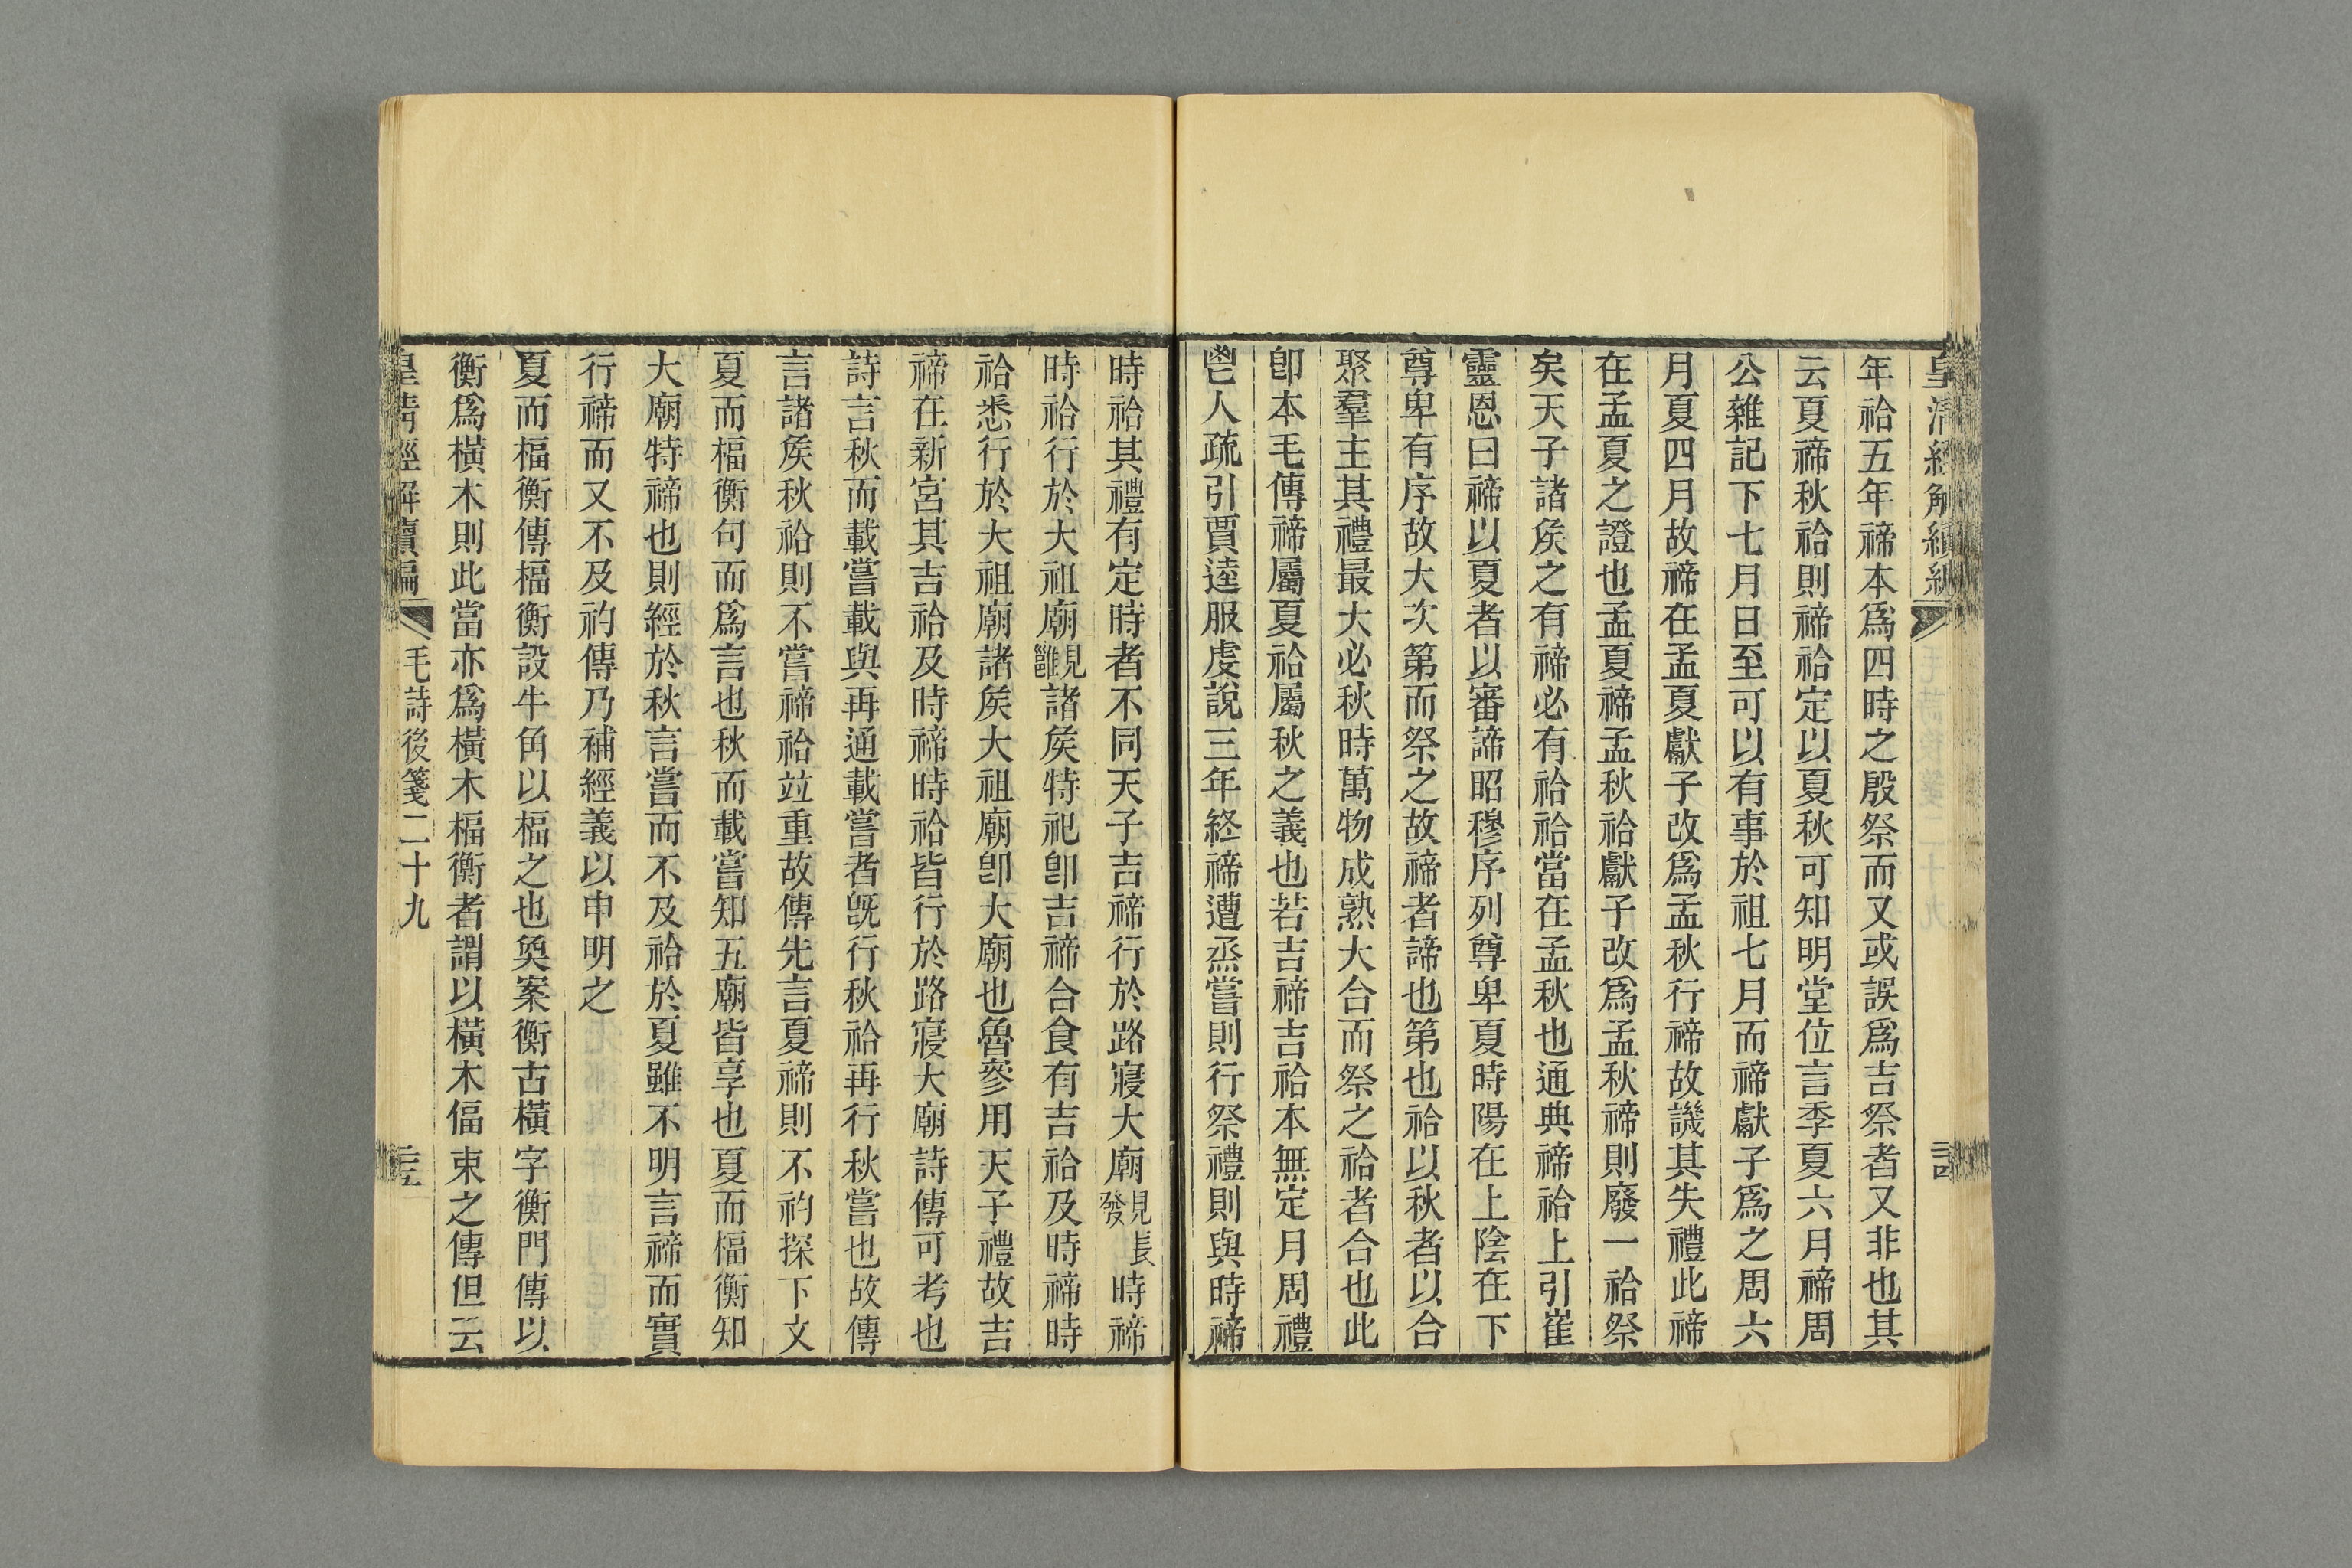 皇清經解續編
年祫五年禘本爲四時之殷祭而又或誤爲吉祭者又非也其
云夏禘秋祫則禘祫定以夏秋可知明堂位言季夏六月禘周
公雜記下七月日至可以有事於祖七月而禘獻子爲之周六
月夏四月故禘在孟夏獻子改爲孟秋行禘故譏其失禮此禘
在孟夏之證也孟夏禘孟秋祫獻子改爲孟秋禘則廢一祫祭
矣天子諸矦之有禘必有祫祫當在孟秋也通典禘祫上引崔
靈恩曰禘以夏者以審諦昭穆序列尊卑夏時陽在上陰在下
尊卑有序故大次第而祭之故禘者諦也第也祫以秋者以合
聚羣主其禮最大必秋時萬物成熟大合而祭之祫者合也此
卽本毛傳禘屬夏祫屬秋之義也若吉禘吉祫本無定月周禮
鬯人疏引賈逵服虔說三年終禘遭烝嘗則行祭禮則與時禘
時祫其禮有定時者不同天子吉禘行於路寢大廟見長發時禘
時祫行於大祖廟見雝諸矦特祀卽吉禘合食有吉祫及時禘時
祫悉行於大祖廟諸矦大祖廟卽大廟也魯參用天子禮故吉
禘在新宮其吉祫及時禘時祫皆行於路寢大廟詩傳可考也
詩言秋而載嘗載與再通載嘗者旣行秋祫再行秋嘗也故傳
言諸矦秋祫則不嘗禘祫竝重故傳先言夏禘則不礿探下文
夏而楅衡句而爲言也秋而載嘗知五廟皆享也夏而楅衡知
大廟特禘也則經於秋言嘗而不及祫於夏雖不明言禘而實
行禘而又不及礿傳乃補經義以申明之
夏而楅衡傳楅衡設牛角以楅之也奐案衡古橫字衡門傳以
衡爲橫木則此當亦爲橫木楅衡者謂以橫木偪束之傳但云
皇清經解續編
毛詩後箋二十九